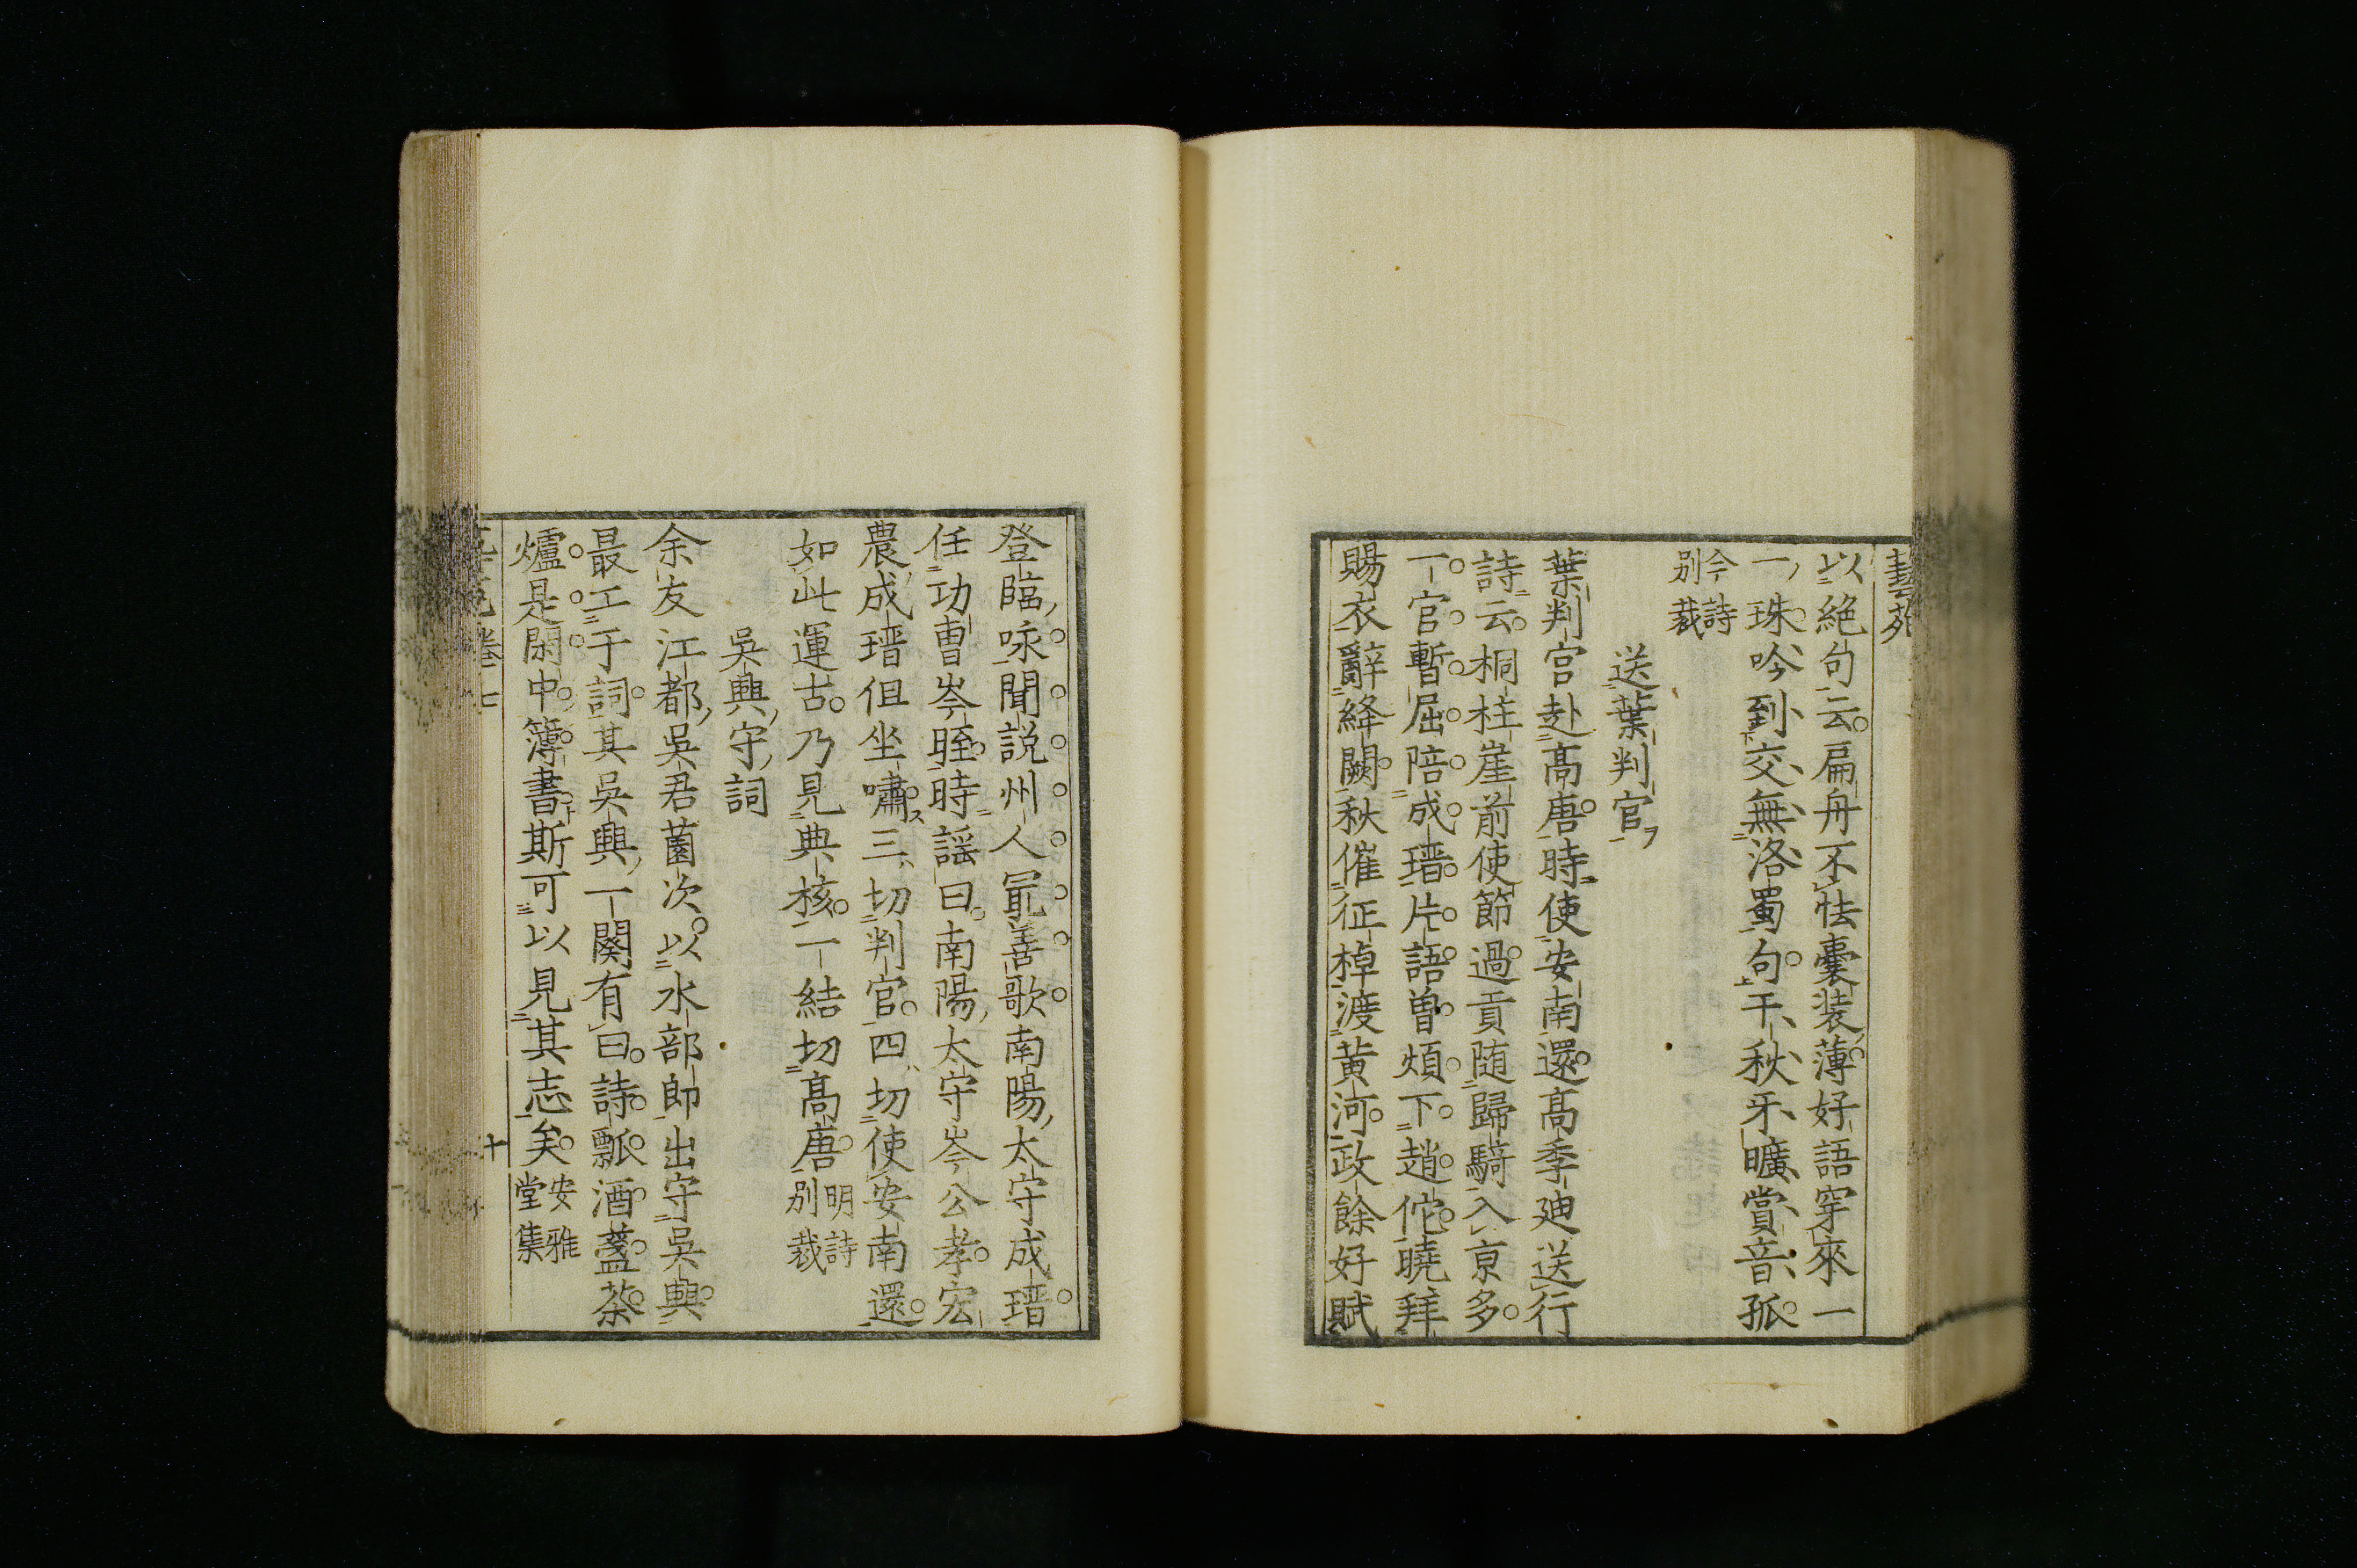 藝苑
以絶句云扁舟不怯囊装薄好語穿來一
一珠吟到交無洛蜀句千秋牙曠賞音孤
今詩
别裁
送葉判官
葉判官赴髙唐時使安南還髙季廸送行
詩云桐柱崖前使節過貢随歸騎入京多
一官暫屈陪成瑨片語曽煩下趙佗曉拜
賜衣辭絳闕秋催征棹渡黄河政餘好賦
登臨咏聞説州人冣善歌南陽太守成瑨
任功曹岑晊時謡曰南陽太守岑公孝宏
農成瑨但坐嘯三切判官四切使安南還
如此運古乃見典核一結切髙唐
明詩
别裁
吳興守詞
余友江都吳君薗次以水部郎出守吳興
最工于詞其吳興一闋有曰詩瓢酒盞茶
爐是閑中簿書斯可以見其志矣
安雅
堂集
卷七
十